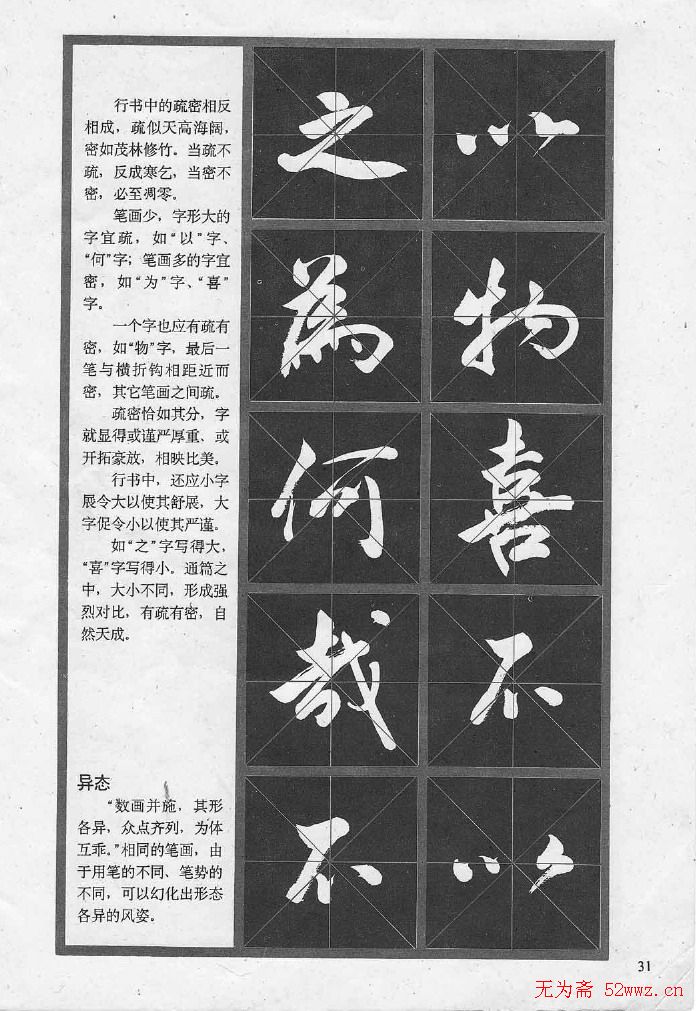 行书中的疏密相反
相成，疏似天高海阔，
密如茂林修竹。当疏不
疏，反成寒乞，当密不
密，必至凋零。
笔画少，字形大的
字宜疏，如“以”字、
“何”字；笔画多的字宜
密，如“为”字、“喜”
字。
一个字也应有疏有
密，如“物”字，最后一
笔与横折钩相距近而
密，其它笔画之间疏。
疏密恰如其分，字
就显得或谨严厚重、或
开拓豪放，相映比美。
行书中，还应小字
展令大以使其舒展，大
字促令小以使其严谨。
如“之”字写得大，
“喜”字写得小。通篇之
中，大小不同，形成强
烈对比，有疏有密，自
然天成。
异态
“数画并施，其形
各异，众点齐列，为体
互乖。”相同的笔画，由
于用笔的不同、笔势的
不同，可以幻化出形态
各异的风姿。
以
物
喜
不
以
之
為
何
哉
不
31
无为斋 52wwz.cn